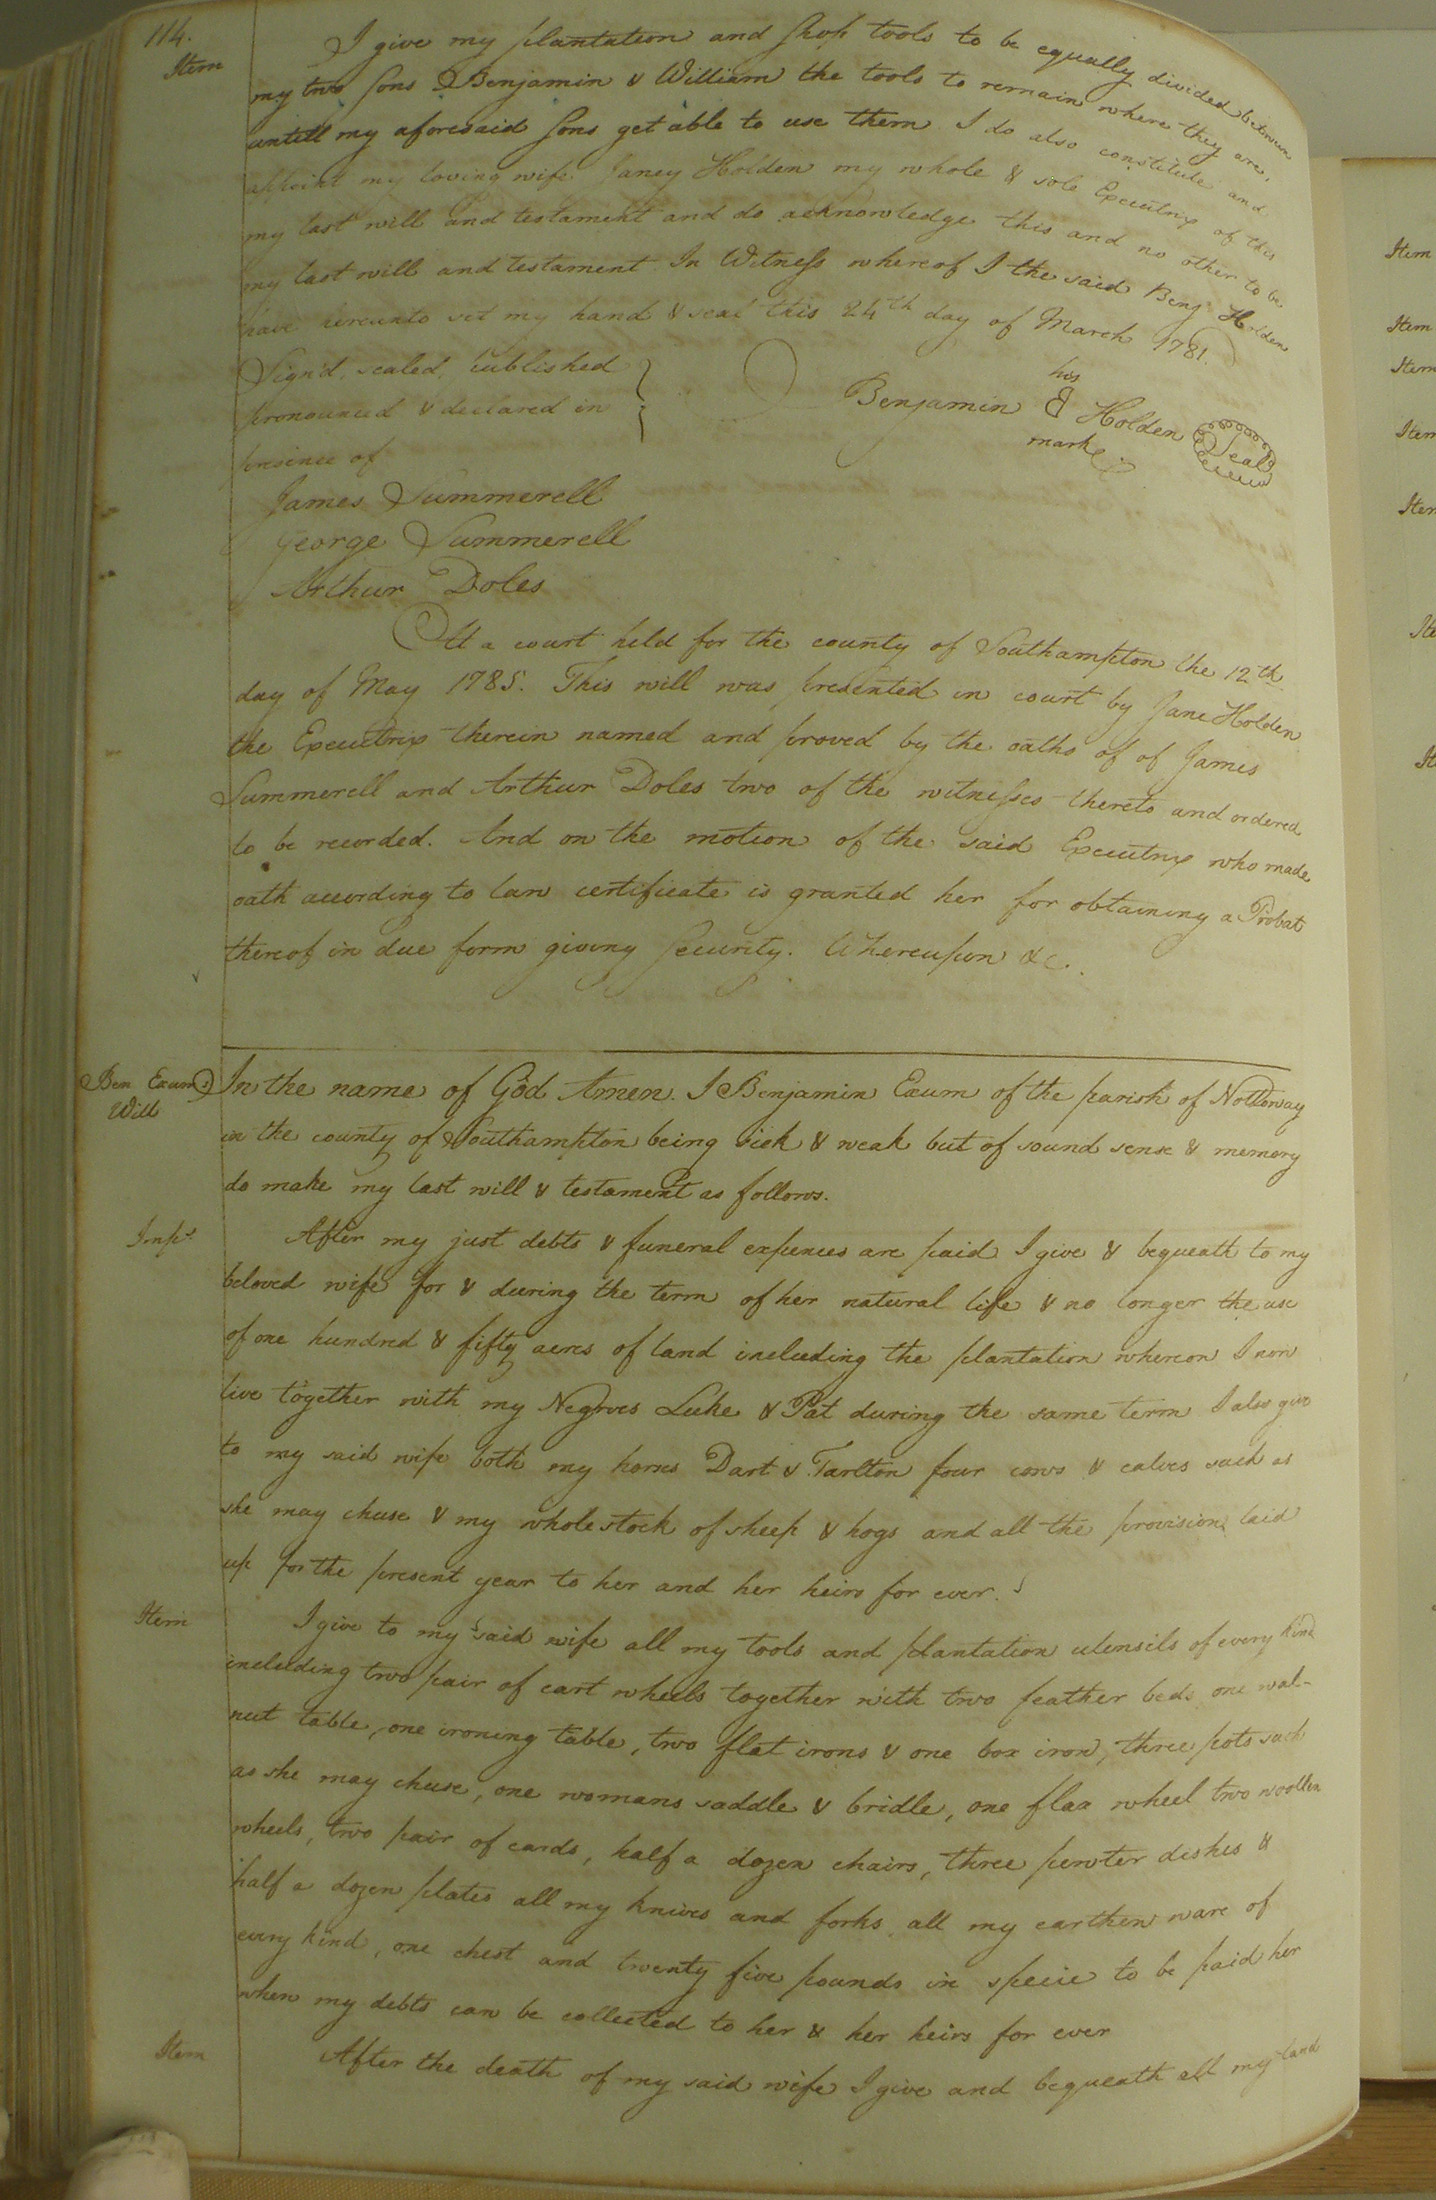 114.
Item I give my plantation and shop tools to be equally divided between
my two sons Benjamin & William the tools to remain where they are,
untill my aforesaid sons get able to use them I do also constitute and
appoint my loving wife Janey Holden my whole & sole Executrix of this
my last will and testament and do acknowledge this and no other to be
my last will and testament In Witness whereof I the said Benj Holden
have hereunto set my hand & seal this 24th day of March 1781.
Sign'd, sealed, published
pronounced & declared in
presence of
his
Benjamin B Holden Seal
mark
James Summerell
George Summerell
Arthur Doles
At a court held for the county of Southampton the 12th
day of May 1785. This will was presented in court by Jane Holden
the Executrix therein named and proved by the oaths of of James
Summerell and Arthur Doles two of the witnesses thereto and ordered
to be recorded. And on the motion of the said Executrix who made
oath according to law certificate is granted her for obtaining a Probat
thereof in due form giving security. Whereupon &c.
Ben Exums
Will
In the name of God Amen. I Benjamin Exum of the parish of Nottoway
in the county of Southampton being sick & weak but of sound sense & memory
do make my last will & testament as follows.
Imps. After my just debts & funeral expences are paid I give & bequeath to my
beloved wife for & during the term of her natural life & no longer the use
of one hundred & fifty acres of land including the plantation whereon I now
live together with my Negroes Luke & Pat during the same term I also give
to my said wife both my horses Dart & Tarlton four cows & calves such as
she may chuse & my whole stock of sheep & hogs and all the provisions laid
up for the present year to her and her heirs for ever.
Item I give to my said wife all my tools and plantation utensils of every kind
including two pair of cart wheels together with two feather beds one wal-
nut table, one ironing table, two flat irons & one box iron, three pots such
as she may chuse, one womans saddle & bridle, one flax wheel two woollen
wheels, two pair of cards, half a dozen chairs, three pewter dishes &
half a dozen plates all my knives and forks, all my earthen ware of
every kind, one chest and twenty five pounds in specie to be paid her
when my debts can be collected to her & her heirs for ever
Item After the death of my said wife I give and bequeath all my land
Item
Item
Item
Item